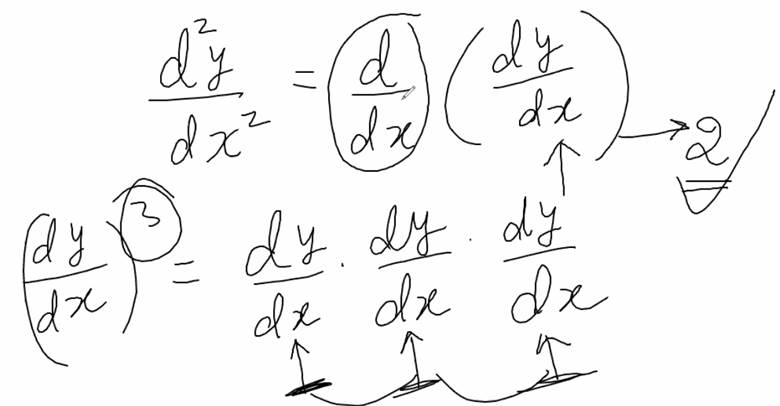 d²y/dx² = d/dx (dy/dx) → 2
(dy/dx)³ = dy/dx · dy/dx · dy/dx